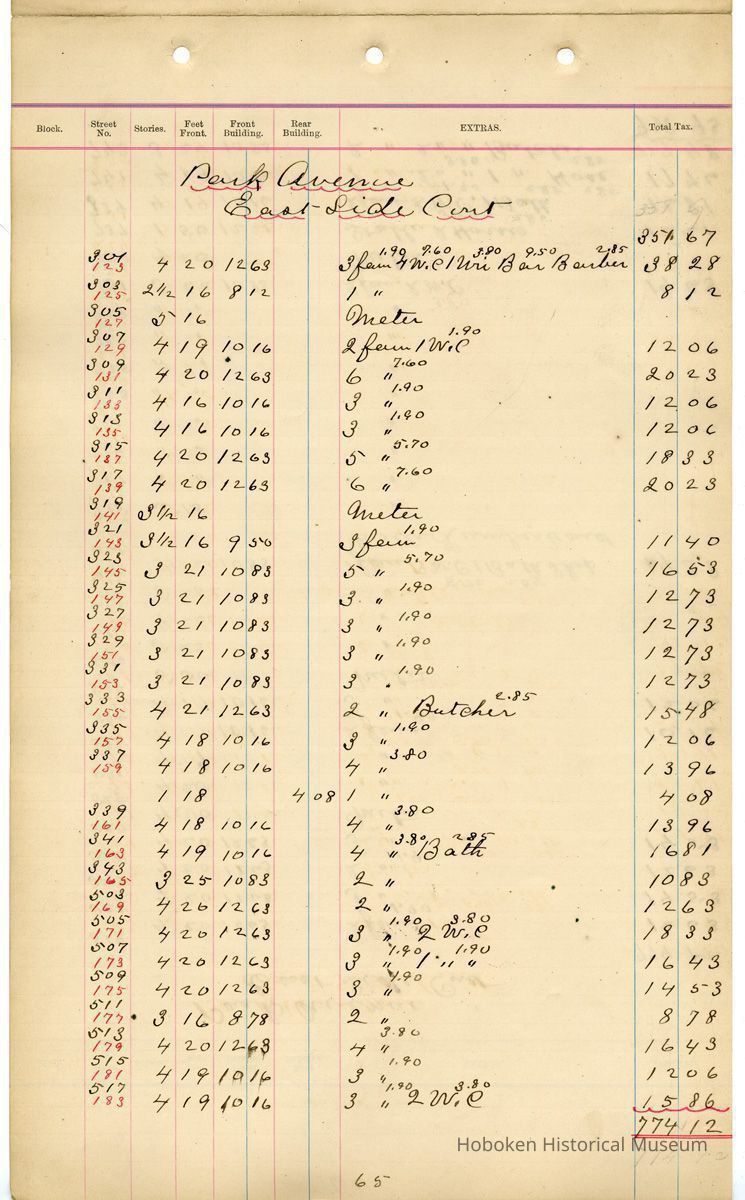 Block. Street No. Stories. Feet Front. Front Building. Rear Building. EXTRAS. Total Tax.
Park Avenue
East Side Cont
351 67
301 123 4 20 12 63 3 fam 1.90 4 W.C 7.60 1 Uri 3.80 Bar 9.50 Barber 2.85 38 28
303 125 2½ 16 8 12 1 " 8 12
305 127 5 16 Meter
307 129 4 19 10 16 2 fam 1 W.C 1.90 12 06
309 131 4 20 12 63 6 " 7.60 20 23
311 133 4 16 10 16 3 " 1.90 12 06
313 135 4 16 10 16 3 " 1.90 12 06
315 137 4 20 12 63 5 " 5.70 18 33
317 139 4 20 12 63 6 " 7.60 20 23
319 141 3½ 16 Meter
321 143 3½ 16 9 50 3 fam 1.90 11 40
323 145 3 21 10 83 5 " 5.70 16 53
325 147 3 21 10 83 3 " 1.90 12 73
327 149 3 21 10 83 3 " 1.90 12 73
329 151 3 21 10 83 3 " 1.90 12 73
331 153 3 21 10 83 3 " 1.90 12 73
333 155 4 21 12 63 2 " Butcher 2.85 15 48
335 157 4 18 10 16 3 " 1.90 12 06
337 159 4 18 10 16 4 " 3.80 13 96
1 18 4 08 1 " 4 08
339 161 4 18 10 16 4 " 3.80 13 96
341 163 4 19 10 16 4 " 3.80 Bath 2.85 16 81
343 165 3 25 10 83 2 " 10 83
503 169 4 20 12 63 2 " 12 63
505 171 4 20 12 63 3 " 1.90 2 W.C 3.80 18 33
507 173 4 20 12 63 3 " 1.90 1 " " 1.90 16 43
509 175 4 20 12 63 3 " 1.90 14 53
511 177 3 16 8 78 2 " 8 78
513 179 4 20 12 63 4 " 3.80 16 43
515 181 4 19 10 16 3 " 1.90 12 06
517 183 4 19 10 16 3 " 1.90 2 W.C 3.80 15 86
774 12
Hoboken Historical Museum
65